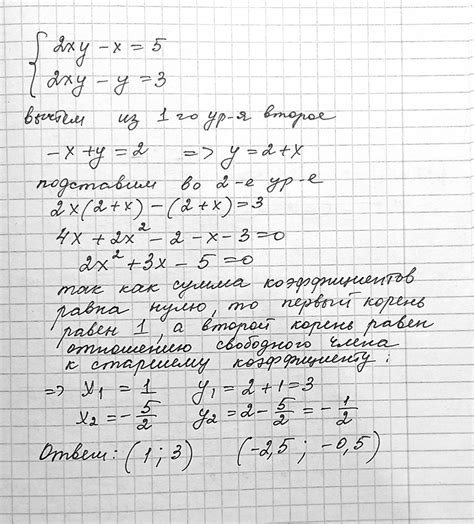 { 2xy - x = 5
2xy - y = 3
вычтем из 1го ур-я второе
-x + y = 2 => y = 2 + x
подставим во 2-е ур-е
2x(2+x) - (2+x) = 3
4x + 2x² - 2 - x - 3 = 0
2x² + 3x - 5 = 0
так как сумма коэффициентов
равна нулю, то первый корень
равен 1, а второй корень равен
отношению свободного члена
к старшему коэффициенту:
=> x₁ = 1 y₁ = 2 + 1 = 3
x₂ = -5/2 y₂ = 2 - 5/2 = -1/2
Ответ: (1; 3) (-2,5; -0,5)